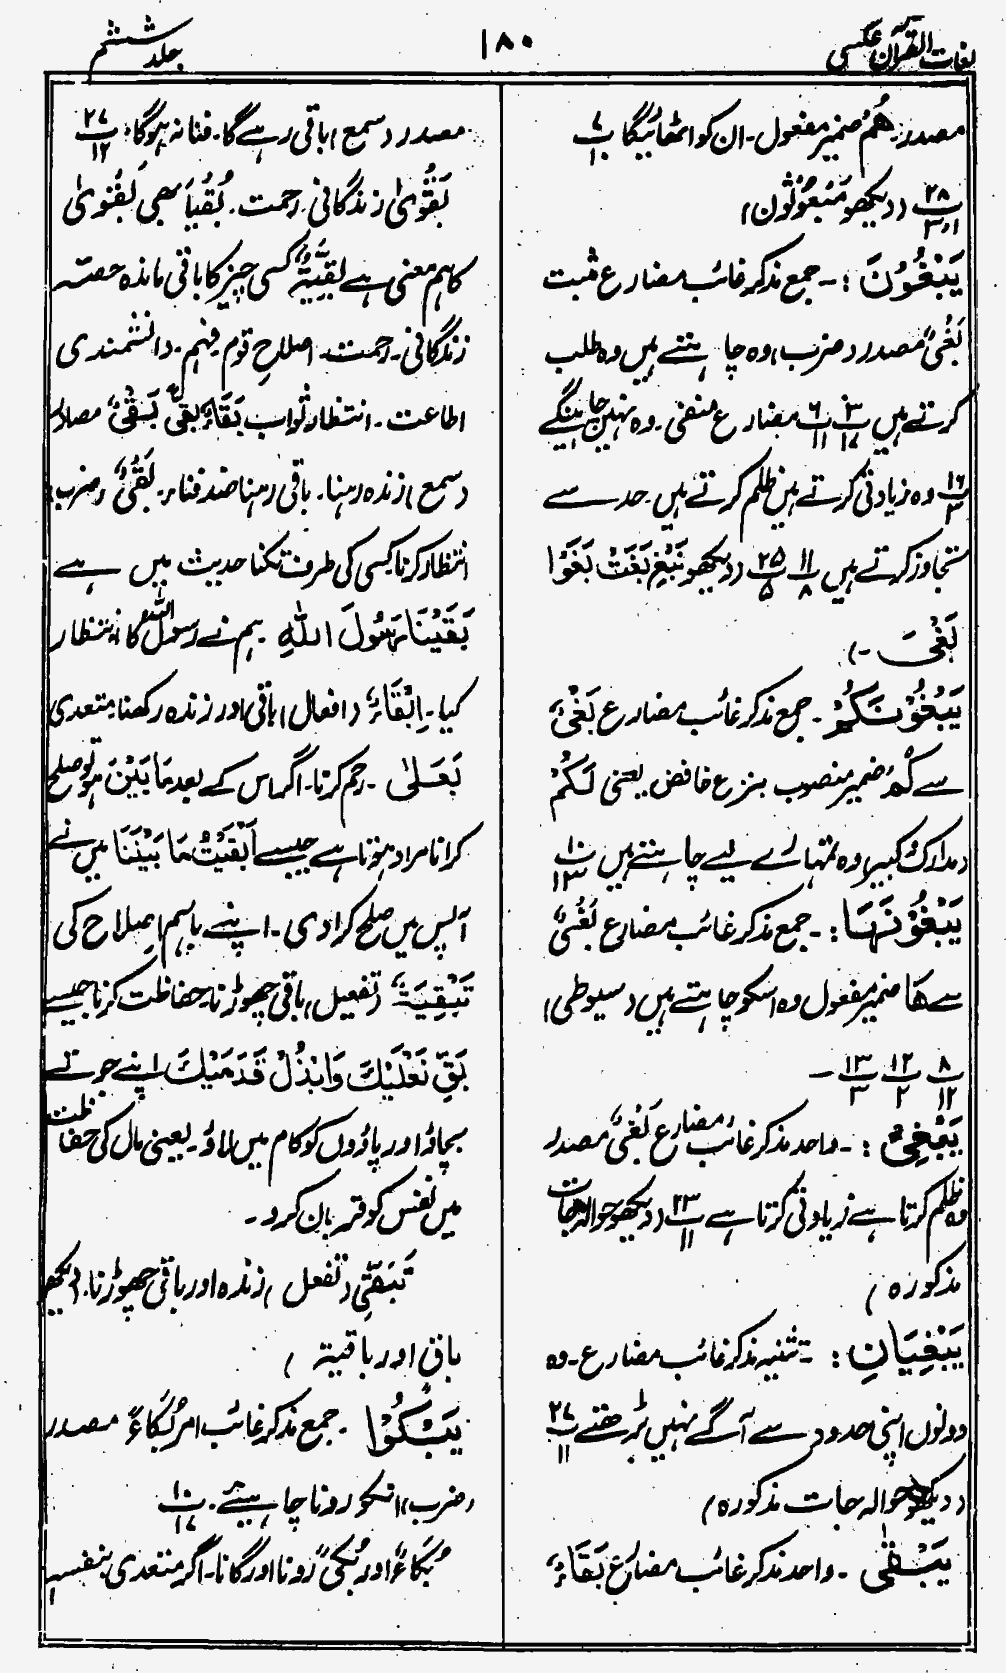 لغات القرآن عکسی
۱۸۰
جلد ششم
مصدر۔ ھُمْ ضمیر مفعول۔ ان کو اٹھائیگا پ ۷/۱۰
پ ۲۸/۲،۱ (دیکھو مَبْعُوْثُون)
یَبْغُوْنَ :۔ جمع مذکر غائب مضارع مثبت
بَغْیٌ مصدر (ضرب) وہ چاہتے ہیں وہ طلب
کرتے ہیں پ ۳/۱۷ پ ۶/۱۱ مضارع منفی۔ وہ نہیں چاہینگے
پ ۱۶/۳ وہ زیادتی کرتے ہیں ظلم کرتے ہیں۔ حد سے
تجاوز کرتے ہیں پ ۱۱/۸ پ ۲۵/۵ (دیکھو نَبْغِ بَغَتْ بَغَوْا
بَغْیَ ۔)
یَبْغُوْنَکُمْ ۔ جمع مذکر غائب مضارع بَغْیٌ
سے کُمْ ضمیر منصوب بنزع خافض یعنی لَکُمْ
(مدارک کبیر) وہ تمہارے لیے چاہتے ہیں پ ۱۰/۱۳
یَبْغُوْنَہَا :۔ جمع مذکر غائب مضارع بَغْیٌ
سے ھَا ضمیر مفعول وہ اسکو چاہتے ہیں (سیوطی)
پ ۸/۱۲ پ ۱۲/۲ پ ۱۳/۳ ۔
یَبْغِیْ :۔ واحد مذکر غائب مضارع بَغْیٌ مصدر
وہ ظلم کرتا ہے زیادتی کرتا ہے پ ۲۳/۱۱ (دیکھو حوالہ جات
مذکورہ)
یَبْغِیَانِ :۔ تثنیہ مذکر غائب مضارع۔ وہ
دونوں اپنی حدود سے آگے نہیں بڑھتے پ ۲۷/۱۱
(دیکھو حوالہ جات مذکورہ)
یَبْقٰی ۔ واحد مذکر غائب مضارع بَقَاءٌ
مصدر (سمع) باقی رہے گا۔ فنا نہ ہوگا پ ۲۷/۱۲
بَقْوٰی زندگانی۔ رحمت۔ بُقْیَا بھی بَقْوٰی
کا ہم معنی ہے بَقِیَّۃٌ کسی چیز کا باقی ماندہ حصّہ
زندگانی۔ رحمت۔ اصلاحِ قوم۔ فہم۔ دانشمندی
اطاعت۔ انتظارِ ثواب بَقَاءٌ بَقْیٌ بَقْیٌ مصادر
(سمع) زندہ رہنا۔ باقی رہنا ضد فناء۔ بَقْیٌ (ضرب)
انتظار کرنا کسی کی طرف تکنا حدیث میں ہے
بَقَیْنَا رَسُوْلَ اللّٰہِ ہم نے رسول اللہ کا انتظار
کیا۔ اِبْقَاءٌ (افعال) باقی اور زندہ رکھنا متعدی
بَعَلٰی ۔ رحم کرنا۔ اگر اس کے بعد مَا بَیْنَ ہو تو صلح
کرانا مراد ہوتا ہے جیسے اَبْقَیْتُ مَا بَیْنَنَا میں نے
آپس میں صلح کرا دی۔ اپنے باہم اصلاح کی
تَبْقِیَۃٌ (تفعیل) باقی چھوڑنا۔ حفاظت کرنا جیسے
بَقِّ نَعْلَیْکَ وَابْذُلْ قَدَمَیْکَ اپنے جوتے
بچاؤ اور پاؤوں کو کام میں لاؤ۔ یعنی مال کی حفاظت
میں نفس کو قربان کر دو۔
تَبَقِّی (تفعل) زندہ اور باقی چھوڑنا۔ (دیکھو
باق اور باقیۃ)
یَبْکُوْا ۔ جمع مذکر غائب امر بُکَاءٌ مصدر
(ضرب) انکو رونا چاہیئے۔ پ ۱۰/۱۷
بُکَاءٌ اور بُکیً رونا اور گانا۔ اگر متعدی بنفسہ